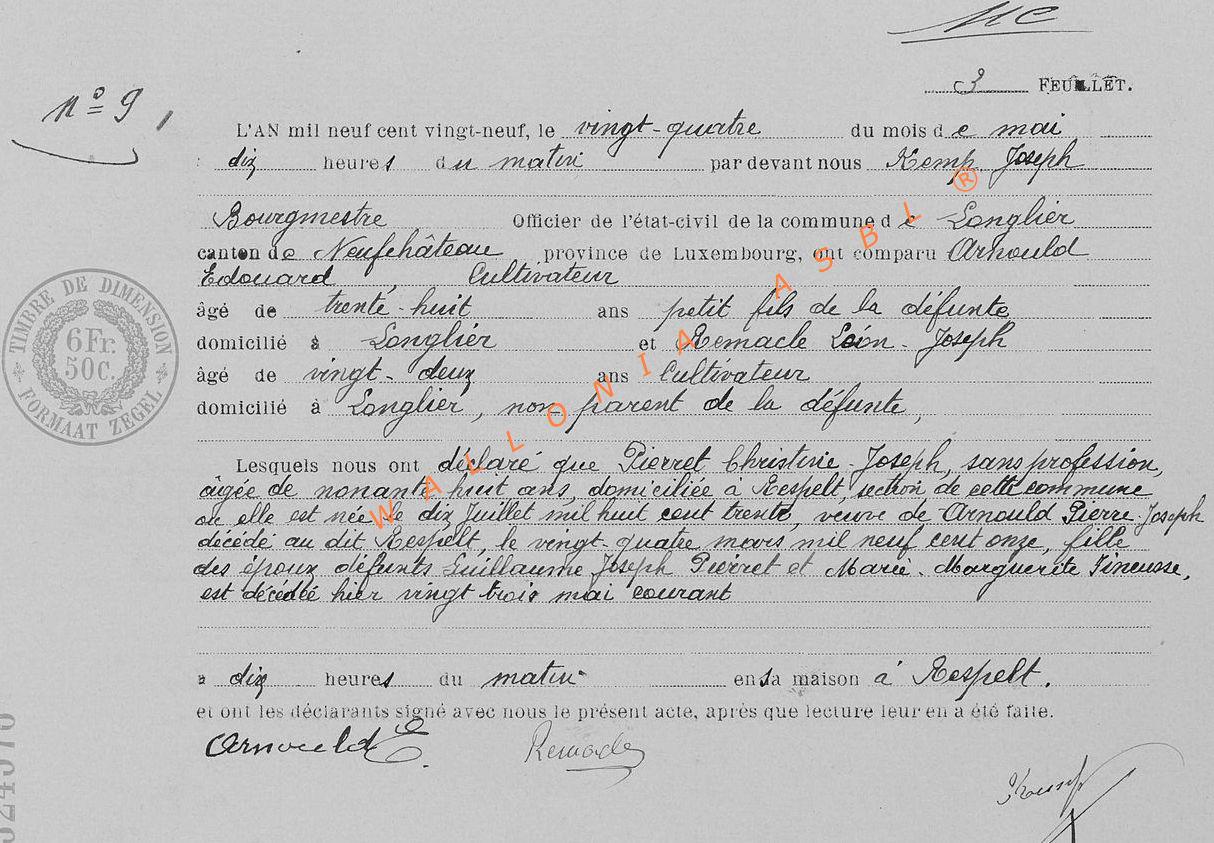 3 FEUILLET.
n° 9
L'AN mil neuf cent vingt-neuf, le vingt-quatre du mois de mai
dix heures du matin par devant nous Kemp Joseph
Bourgmestre Officier de l'état-civil de la commune de Longlier
canton de Neufchâteau province de Luxembourg, ont comparu Arnould
Edouard, Cultivateur
âgé de trente-huit ans petit fils de la défunte
domicilié à Longlier et Remacle Léon-Joseph
âgé de vingt-deux ans Cultivateur
domicilié à Longlier, non parent de la défunte,
Lesquels nous ont déclaré que Pierret Christine-Joseph, sans profession,
âgée de nonante huit ans, domiciliée à Respelt, section de cette commune
où elle est née le dix Juillet mil huit cent trente, veuve de Arnould Pierre-Joseph
décédé au dit Respelt, le vingt-quatre mars mil neuf cent onze, fille
des époux défunts Guillaume Joseph Pierret et Marie-Marguerite Pineusse,
est décédée hier vingt trois mai courant
à dix heures du matin en sa maison à Respelt.
et ont les déclarants signé avec nous le présent acte, après que lecture leur en a été faite.
Arnould E. Remacle
Kemp
TIMBRE DE DIMENSION
6 Fr.
50c.
FORMAAT ZEGEL
WALLONIA ASBL ®